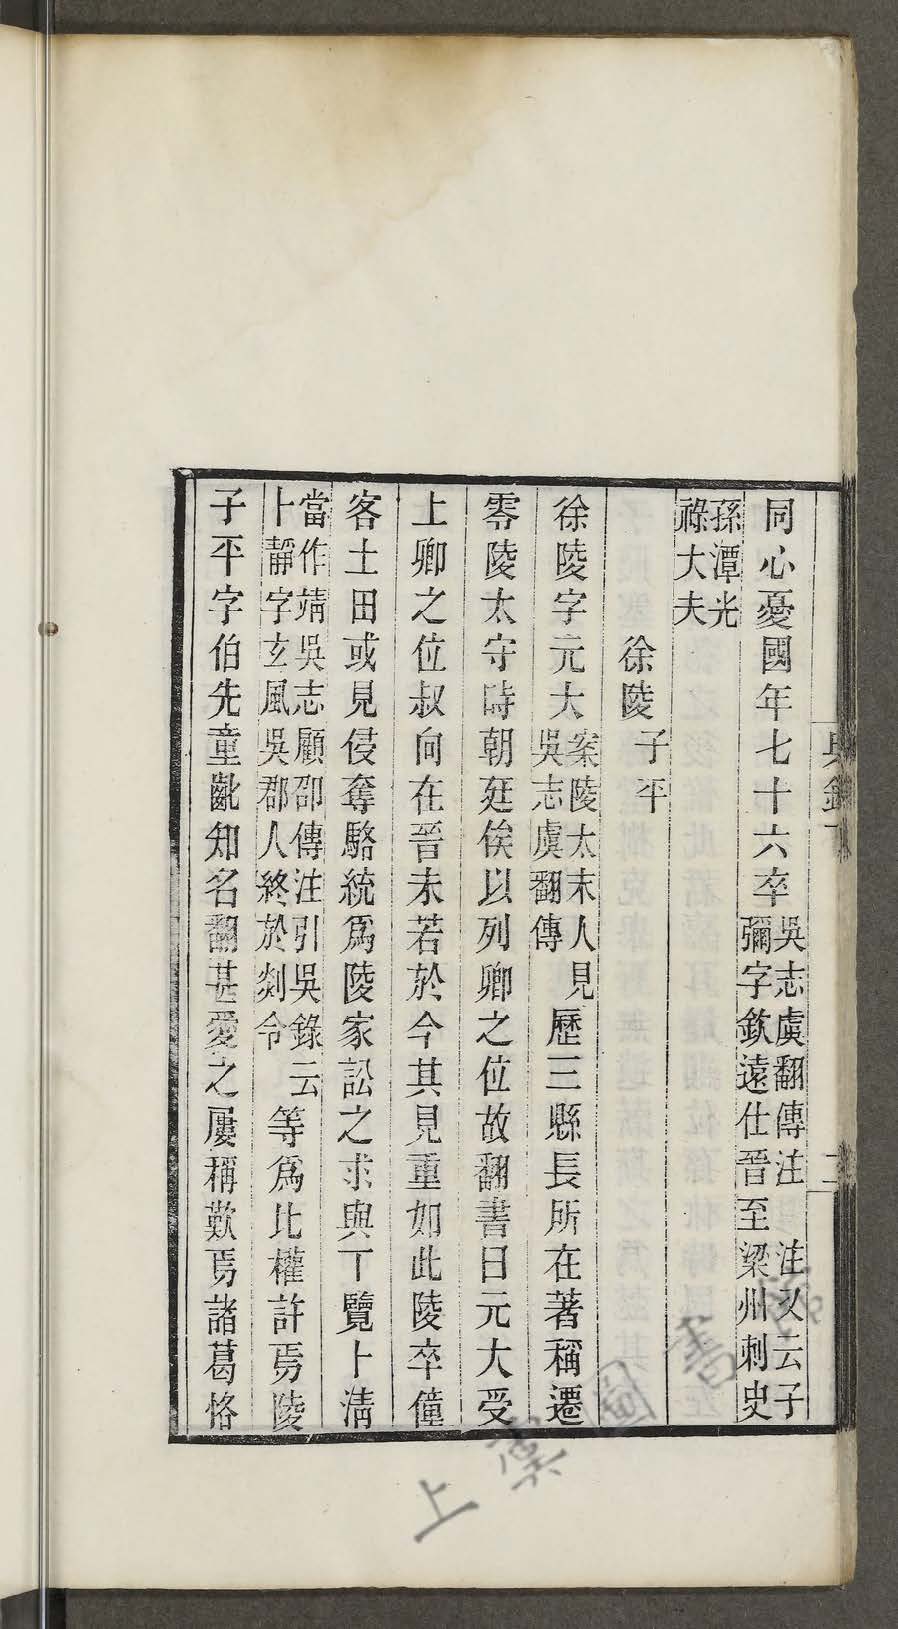 同心憂國年七十六卒吳志虞翻傳注 注又云子彌字欽遠仕晉至梁州刺史
孫潭光祿大夫
徐陵子平
徐陵字元大案陵太末人見吳志虞翻傳歷三縣長所在著稱遷
零陵太守時朝廷俟以列卿之位故翻書曰元大受
上卿之位叔向在晉未若於今其見重如此陵卒僮
客土田或見侵奪駱統爲陵家訟之求與丁覽卜淸
當作靖吳志顧卲傳注引吳錄云卜靜字玄風吳郡人終於剡令等爲比權許焉陵
子平字伯先童齓知名翻甚愛之屢稱歎焉諸葛恪
上虞圖書館